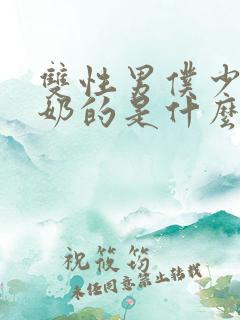 雙性男僕少
奶的是什麼
祝筱筠
未經同意禁止轉載